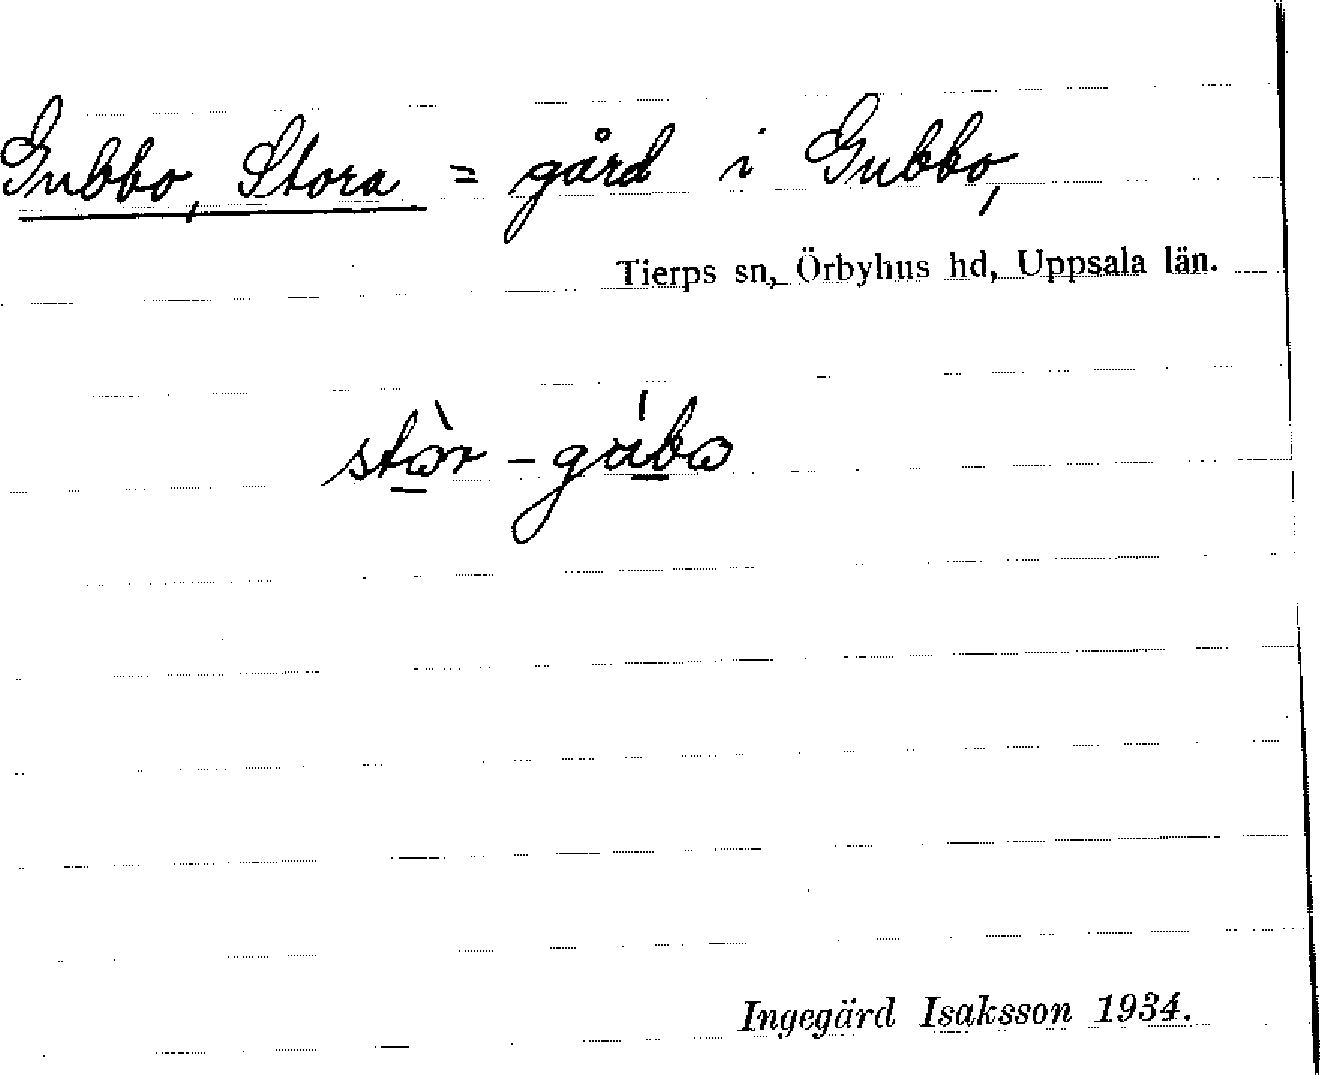 Gubbo, Stora = gård i Gubbo,
Tierps sn, Örbyhus hd, Uppsala län.
stòr - gúbo
Ingegärd Isaksson 1934.